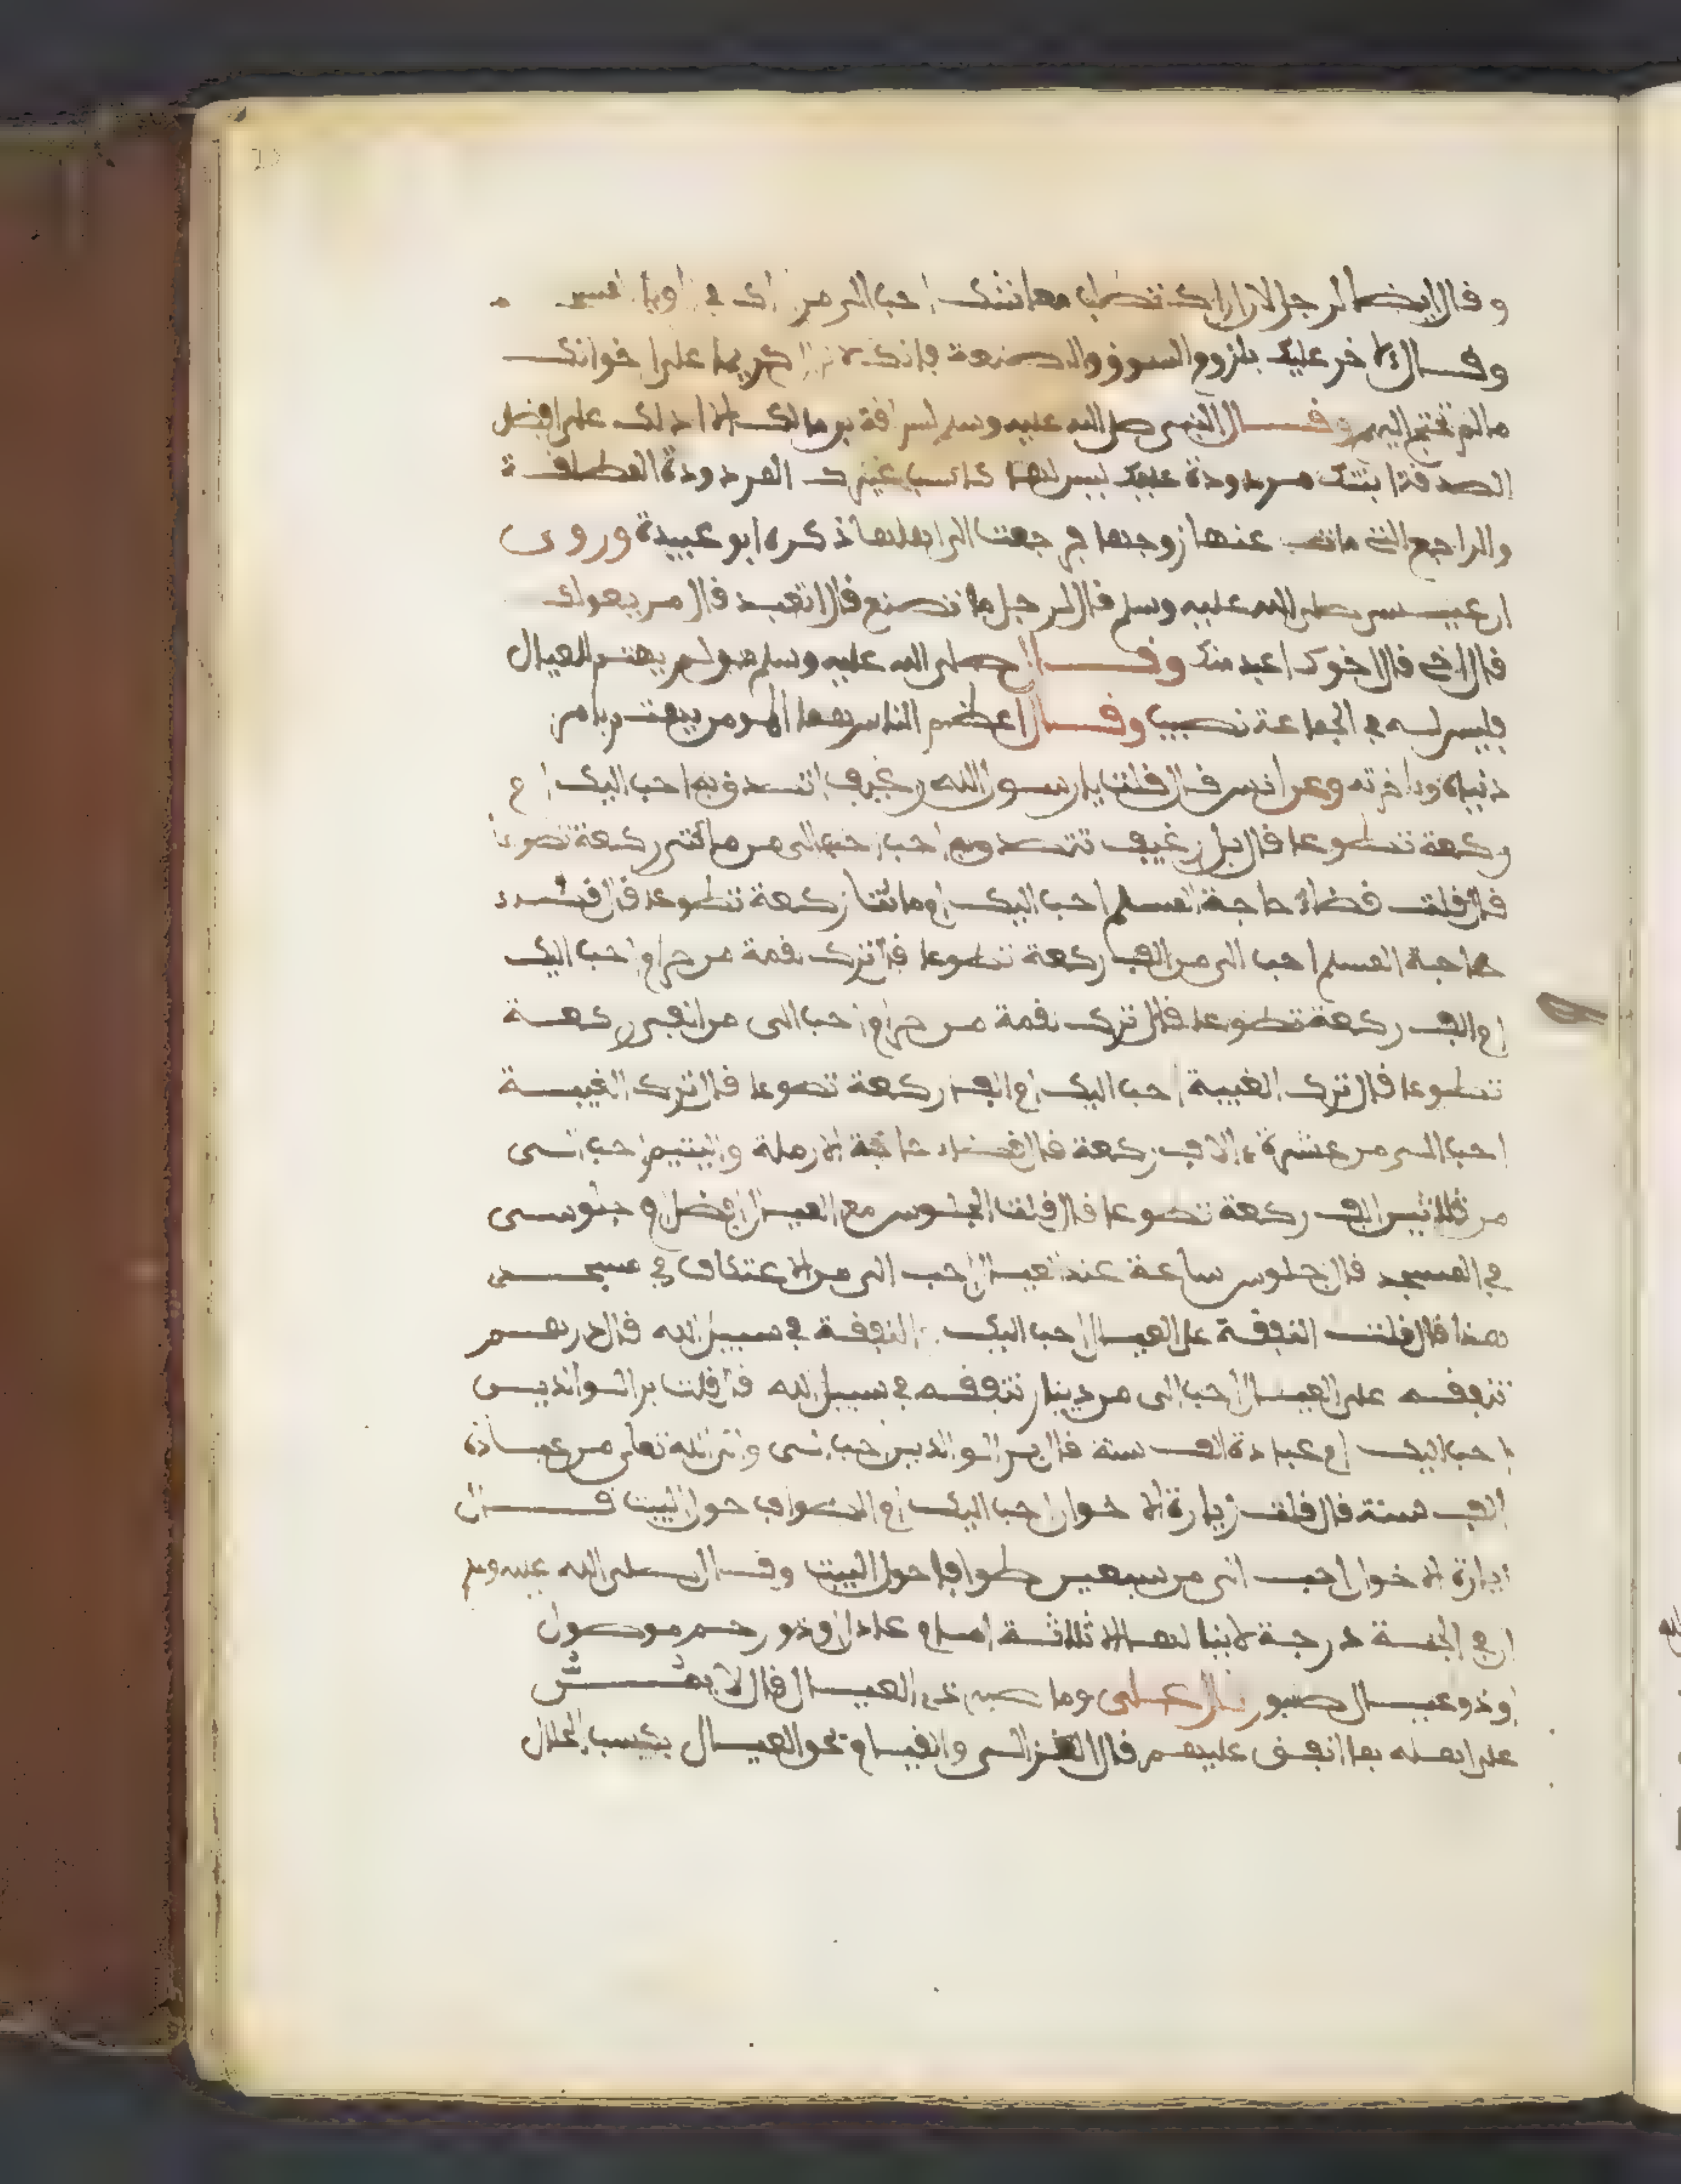 وقال ايضا لرجل لان اراك تطلب معاشك احب الي من ان اراك في زاوية المسجد
وقال لاخر عليك بلزوم السوق والصنعة فانك لا تزال كريما على اخوانك
ما لم تحتج اليهم وقال النبي صلى الله عليه وسلم لسراقة بن مالك الا ادلك على افضل
الصدقة ابنتك مردودة عليك ليس لها كاسب غيرك المردودة المطلقة
والراجع التي مات عنها زوجها فرجعت الى اهلها ذكره ابو عبيدة وروى
ان عيسى صلى الله عليه وسلم قال لرجل ما تصنع قال اتعبد قال من يعولك
قال اخي قال اخوك اعبد منك وقال صلى الله عليه وسلم من لم يهتم للعيال
فليس له في الجماعة نصيب وقال اعظم الناس هما المومن يهتم بامر
دنياه وداخرته وعن انس قال قلت يا رسول الله رغيف اتصدق به احب اليك ام
ركعة تطوعا قال بل رغيف تتصدق به احب الي من مائتي ركعة تطوعا
قال قلت قضاء حاجة المسلم احب اليك ام مائتا ركعة تطوعا قال قضاء
حاجة المسلم احب الي من الف ركعة تطوعا قال ترك لقمة من حرام احب اليك
ام الف ركعة تطوعا قال ترك لقمة من حرام احب الي من الفي ركعة
تطوعا قال ترك الغيبة احب اليك ام الف ركعة تطوعا قال ترك الغيبة
احب الي من عشرة ءالاف ركعة قال قضاء حاجة الارملة واليتيم احب الي
من ثلاثين الف ركعة تطوعا قال قلت الجلوس مع العيال افضل ام جلوسي
في المسجد قال جلوس ساعة عند العيال احب الي من الاعتكاف في مسجدي
هذا قال قلت النفقة على العيال احب اليك ام النفقة في سبيل الله قال درهم
تنفقه على العيال احب الي من دينار تنفقه في سبيل الله قال قلت بر الوالدين
احب اليك ام عبادة الف سنة قال بر الوالدين احب الي والى الله تعلى من عبادة
الف سنة قال قلت زيارة الاخوان احب اليك ام الطواف حول البيت قال
زيارة الاخوان احب الي من سبعين طوافا حول البيت وقال صلى الله عليه وسلم
ان في الجنة درجة لا ينالها الا ثلاثة امام عادل او ذو رحم موصول
او ذو عيال صبور قال علي وما صبر ذي العيال قال لا يمن
على اهله بما انفق عليهم قال الغزالي والقيام بحق العيال بكسب الحلال